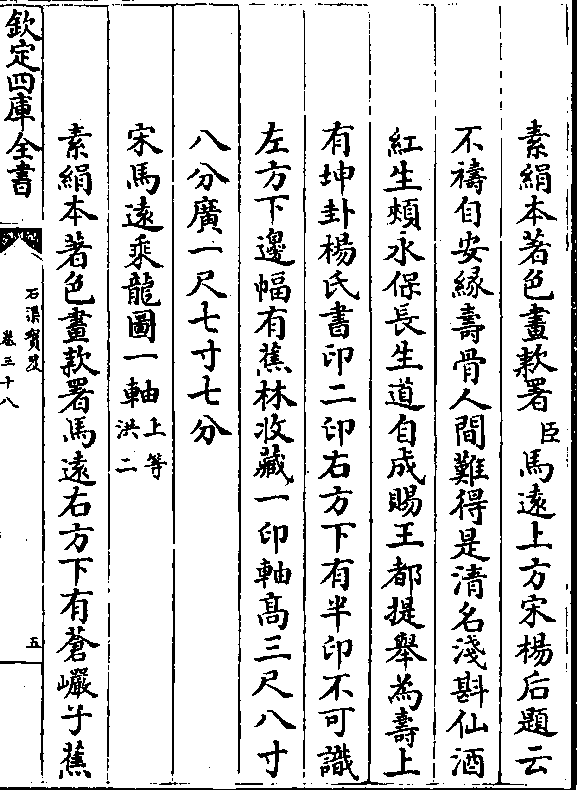 素絹本著色畫款署臣馬遠上方宋楊后題云
不禱自安緣壽骨人間難得是清名淺斟仙酒
紅生頰永保長生道自成賜王都提舉為壽上
有坤卦楊氏書印二印右方下有半印不可識
左方下邊幅有蕉林收藏一印軸高三尺八寸
八分廣一尺七寸七分
宋馬遠乘龍圖一軸上等洪二
素絹本著色畫款署馬遠右方下有蒼巖子蕉
欽定四庫全書
石渠寳笈
卷三十八
五